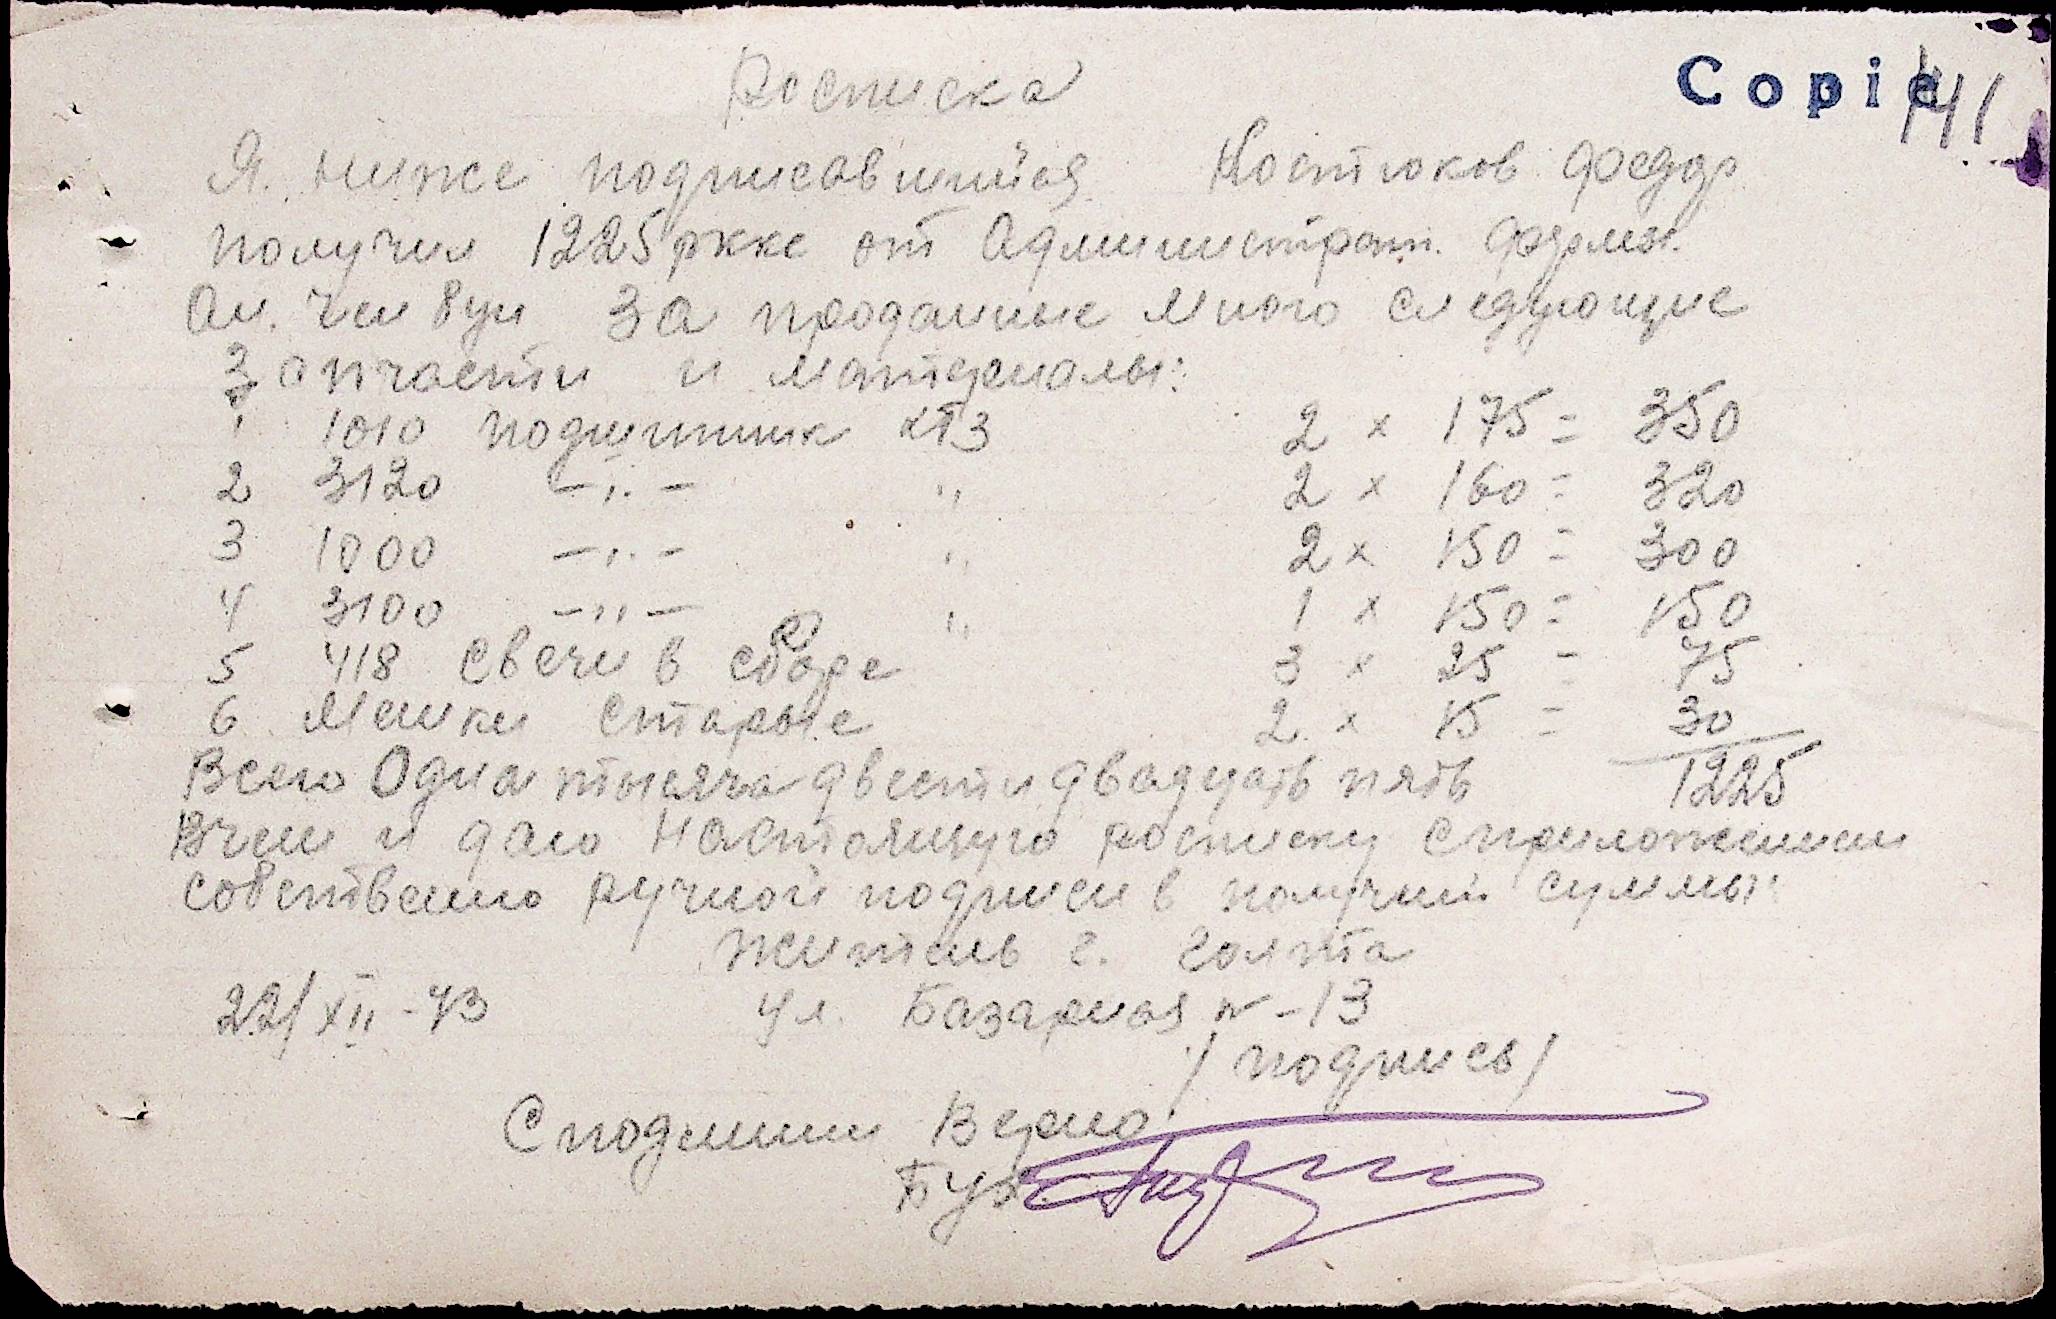 Росписка
Copie
141
Я. ниже подписавшийся Костюков Федор
получил 1225 ркке от Администрат. фермы.
Ан. Чембун За проданные мною следующие
Запчасти и материалы:
1 1010 подшипник ХТЗ 2 x 175 = 350
2 3120 -"- " 2 x 160 = 320
3 1000 -"- " 2 x 150 = 300
4 3100 -"- " 1 x 150 = 150
5 418 Свечи в сборе 3 x 25 = 75
6 Мешки старые 2 x 15 = 30
Всего Одна тысяча двести двадцать пять 1225
Вчем и даю настоящую росписку с приложением
собственно ручной подписи в получ. суммы:
житель г. Голта
22/XII-43 Ул. Базарная №-13
/подпись/
С подлинним Верно:
Бух